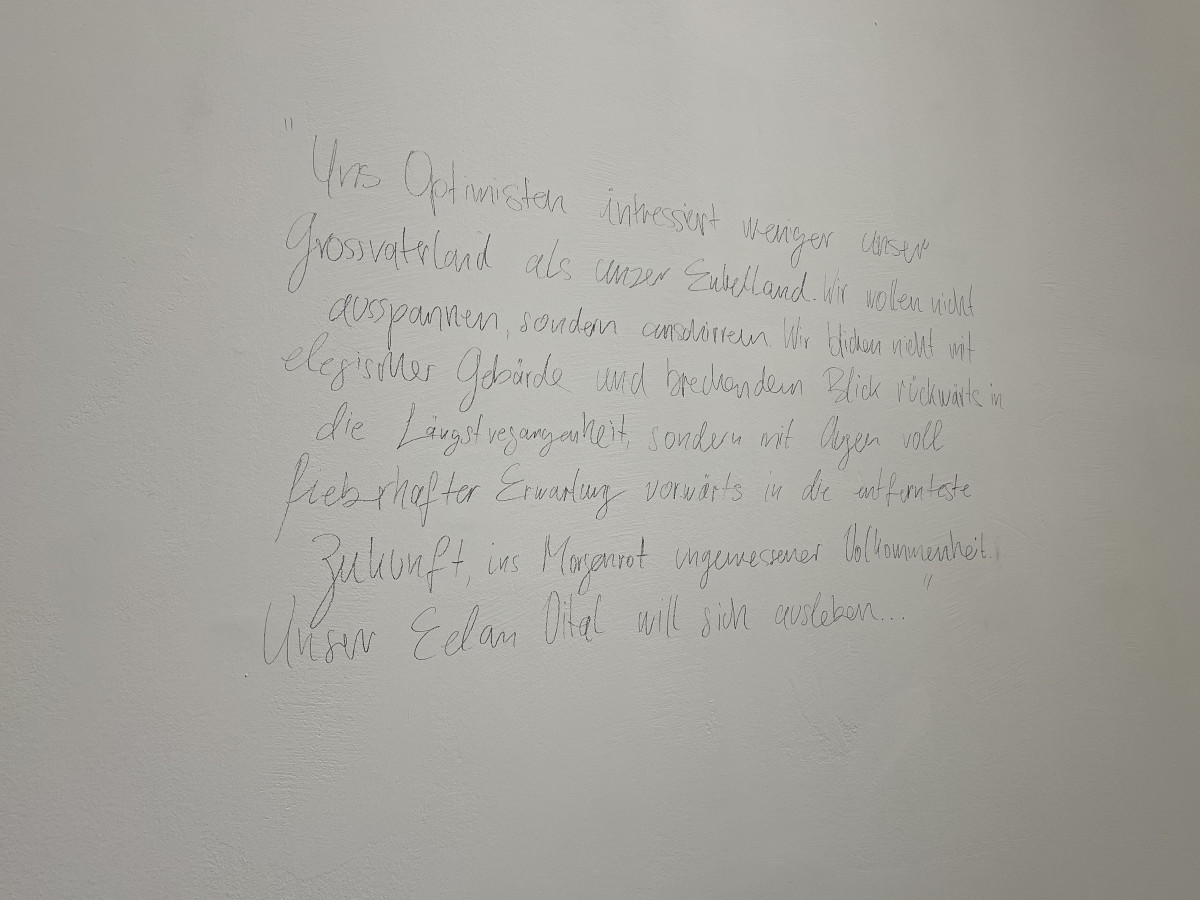 "Uns Optimisten intressiert weniger unser
Grossvaterland als unser Enkelland. Wir wollen nicht
ausspannen, sondern anschirren. Wir blicken nicht mit
elegischer Gebärde und brechendem Blick rückwärts in
die Längstvegangenheit, sondern mit Augen voll
fieberhafter Erwartung vorwärts in die entfernteste
Zukunft, ins Morgenrot ungemessener Volkommenheit.
Unser Eelan Vital will sich ausleben..."